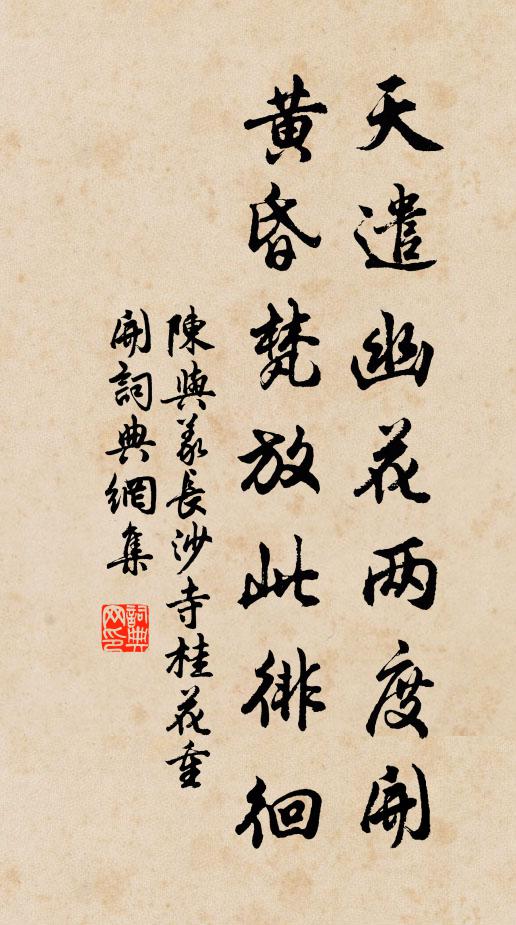 天遣幽花两度開
黄昏梵放此徘徊
陳與義長沙寺桂花重
開詞典網集
詞典
网印